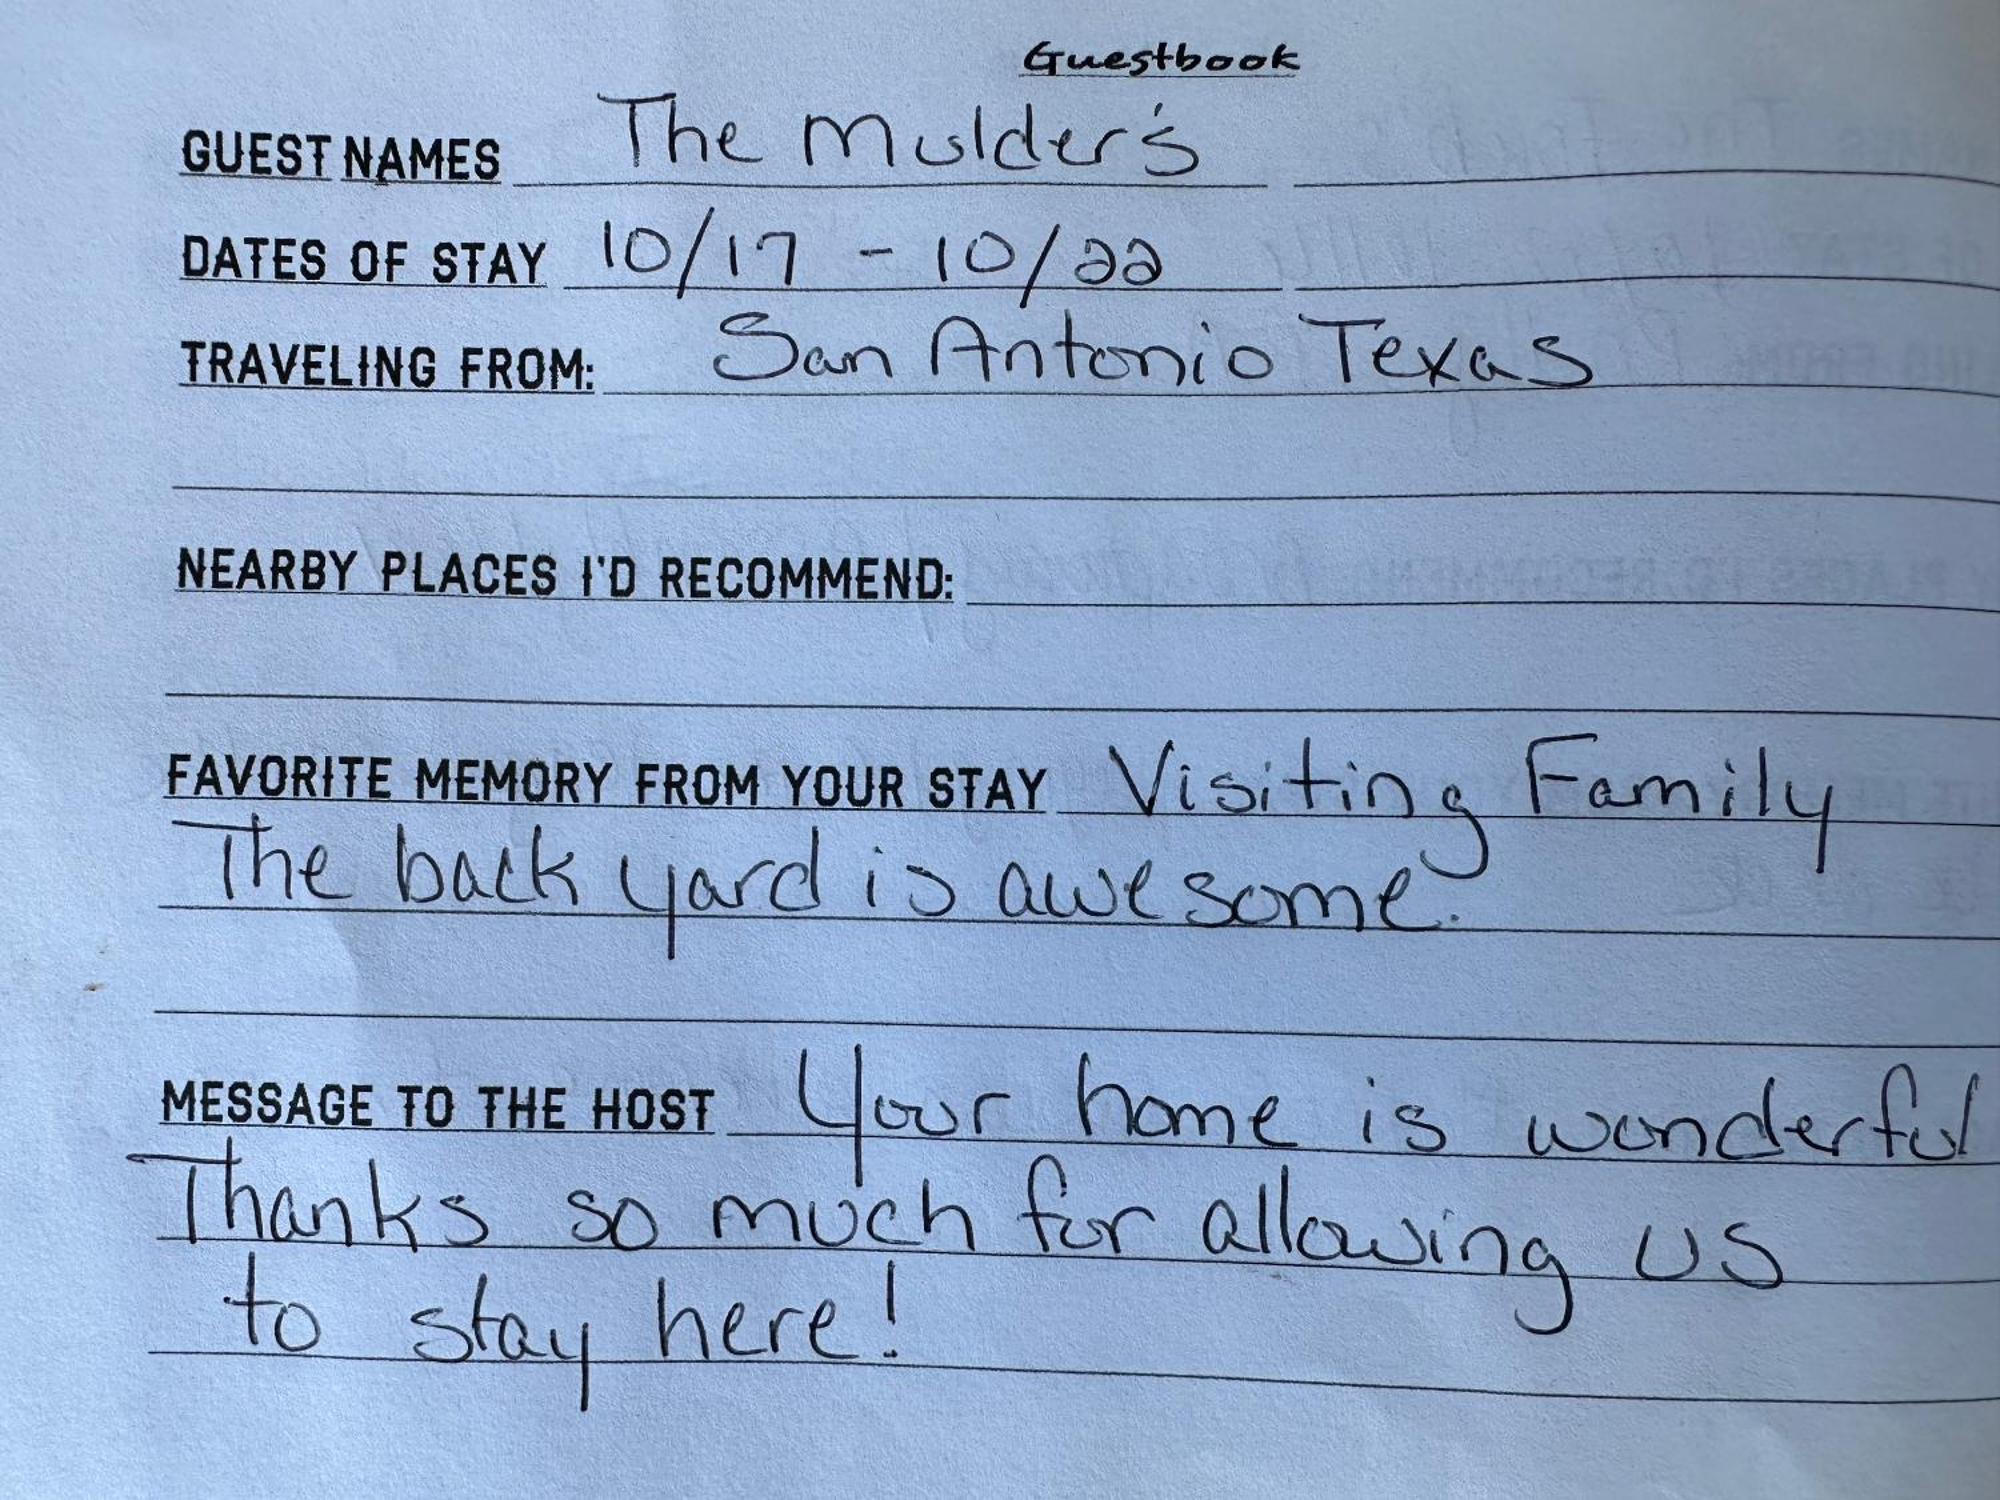 Guestbook
GUEST NAMES The Mulder's
DATES OF STAY 10/17 - 10/22
TRAVELING FROM: San Antonio Texas
NEARBY PLACES I'D RECOMMEND:
FAVORITE MEMORY FROM YOUR STAY Visiting Family
The back yard is awesome.
MESSAGE TO THE HOST Your home is wonderful
Thanks so much for allowing us
to stay here!